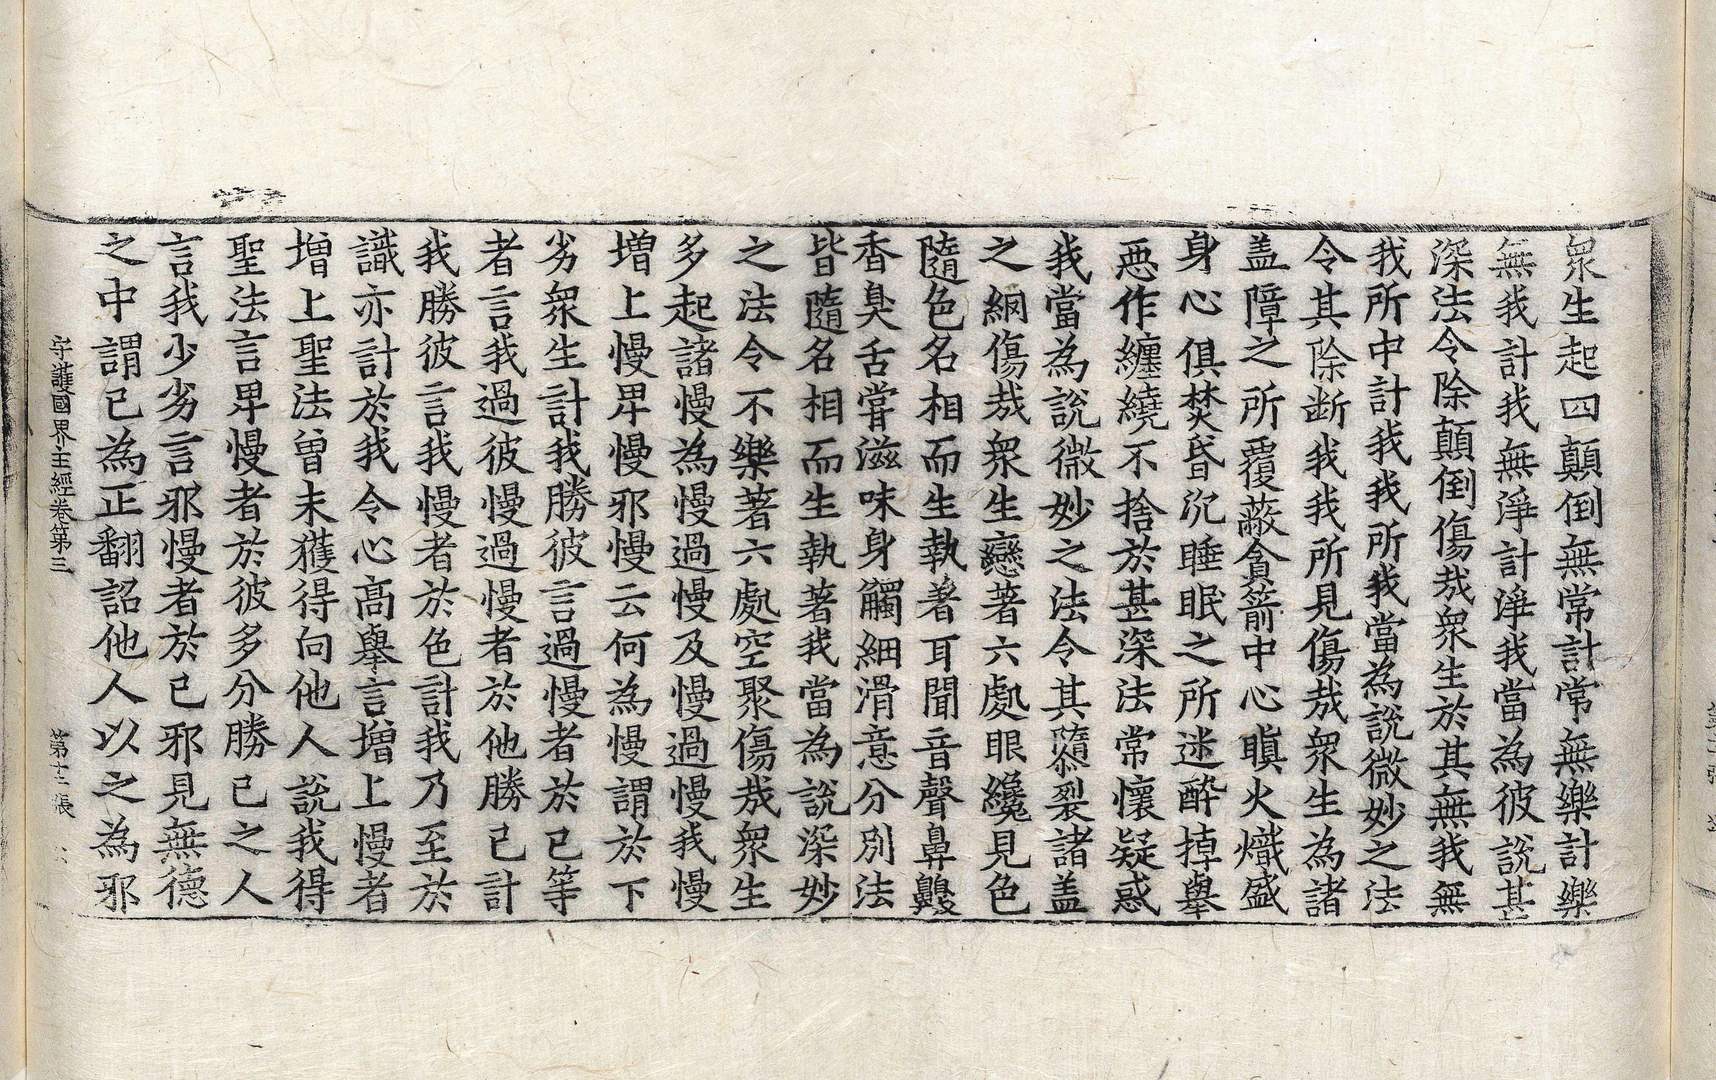 衆生起四顛倒無常計常無樂計樂
無我計我無淨計淨我當為彼說甚
深法令除顛倒傷哉衆生於其無我無
我所中計我我所我當為說微妙之法
令其除断我我所見傷哉衆生為諸
盖障之所覆蔽貪箭中心瞋火熾盛
身心俱焚昏沉睡眠之所迷醉掉擧
惡作纏繞不捨於甚深法常懷疑惑
我當為說微妙之法令其隳裂諸盖
之網傷哉衆生戀著六處眼纔見色
隨色名相而生執著耳聞音聲鼻齅
香臭舌甞滋味身觸細滑意分別法
皆隨名相而生執著我當為說深妙
之法令不樂著六處空聚傷哉衆生
多起諸慢為慢過慢及慢過慢我慢
增上慢卑慢邪慢云何為慢謂於下
劣衆生計我勝彼言過慢者於已等
者言我過彼慢過慢者於他勝已計
我勝彼言我慢者於色計我乃至於
識亦計於我令心高擧言增上慢者
增上聖法曾未獲得向他人說我得
聖法言卑慢者於彼多分勝已之人
言我少劣言邪慢者於已邪見無德
之中謂已為正翻謟他人以之為邪
守護國界主經卷第三 第十三張